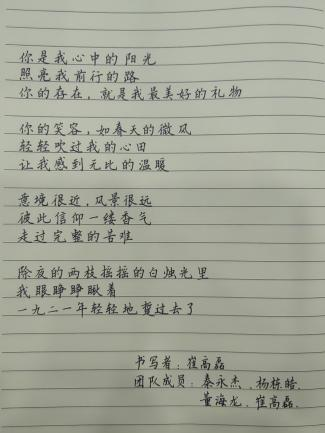 你是我心中的阳光
照亮我前行的路
你的存在，就是我最美好的礼物
你的笑容，如春天的微风
轻轻吹过我的心田
让我感到无比的温暖
意境很近，风景很远
彼此信仰一缕香气
走过完整的苦难
除夜的两枝摇摇的白烛光里
我眼睁睁瞅着
一九二一年轻轻地踅过去了
书写者：崔高磊
团队成员：秦永杰、杨栋皓、
董海龙、崔高磊.